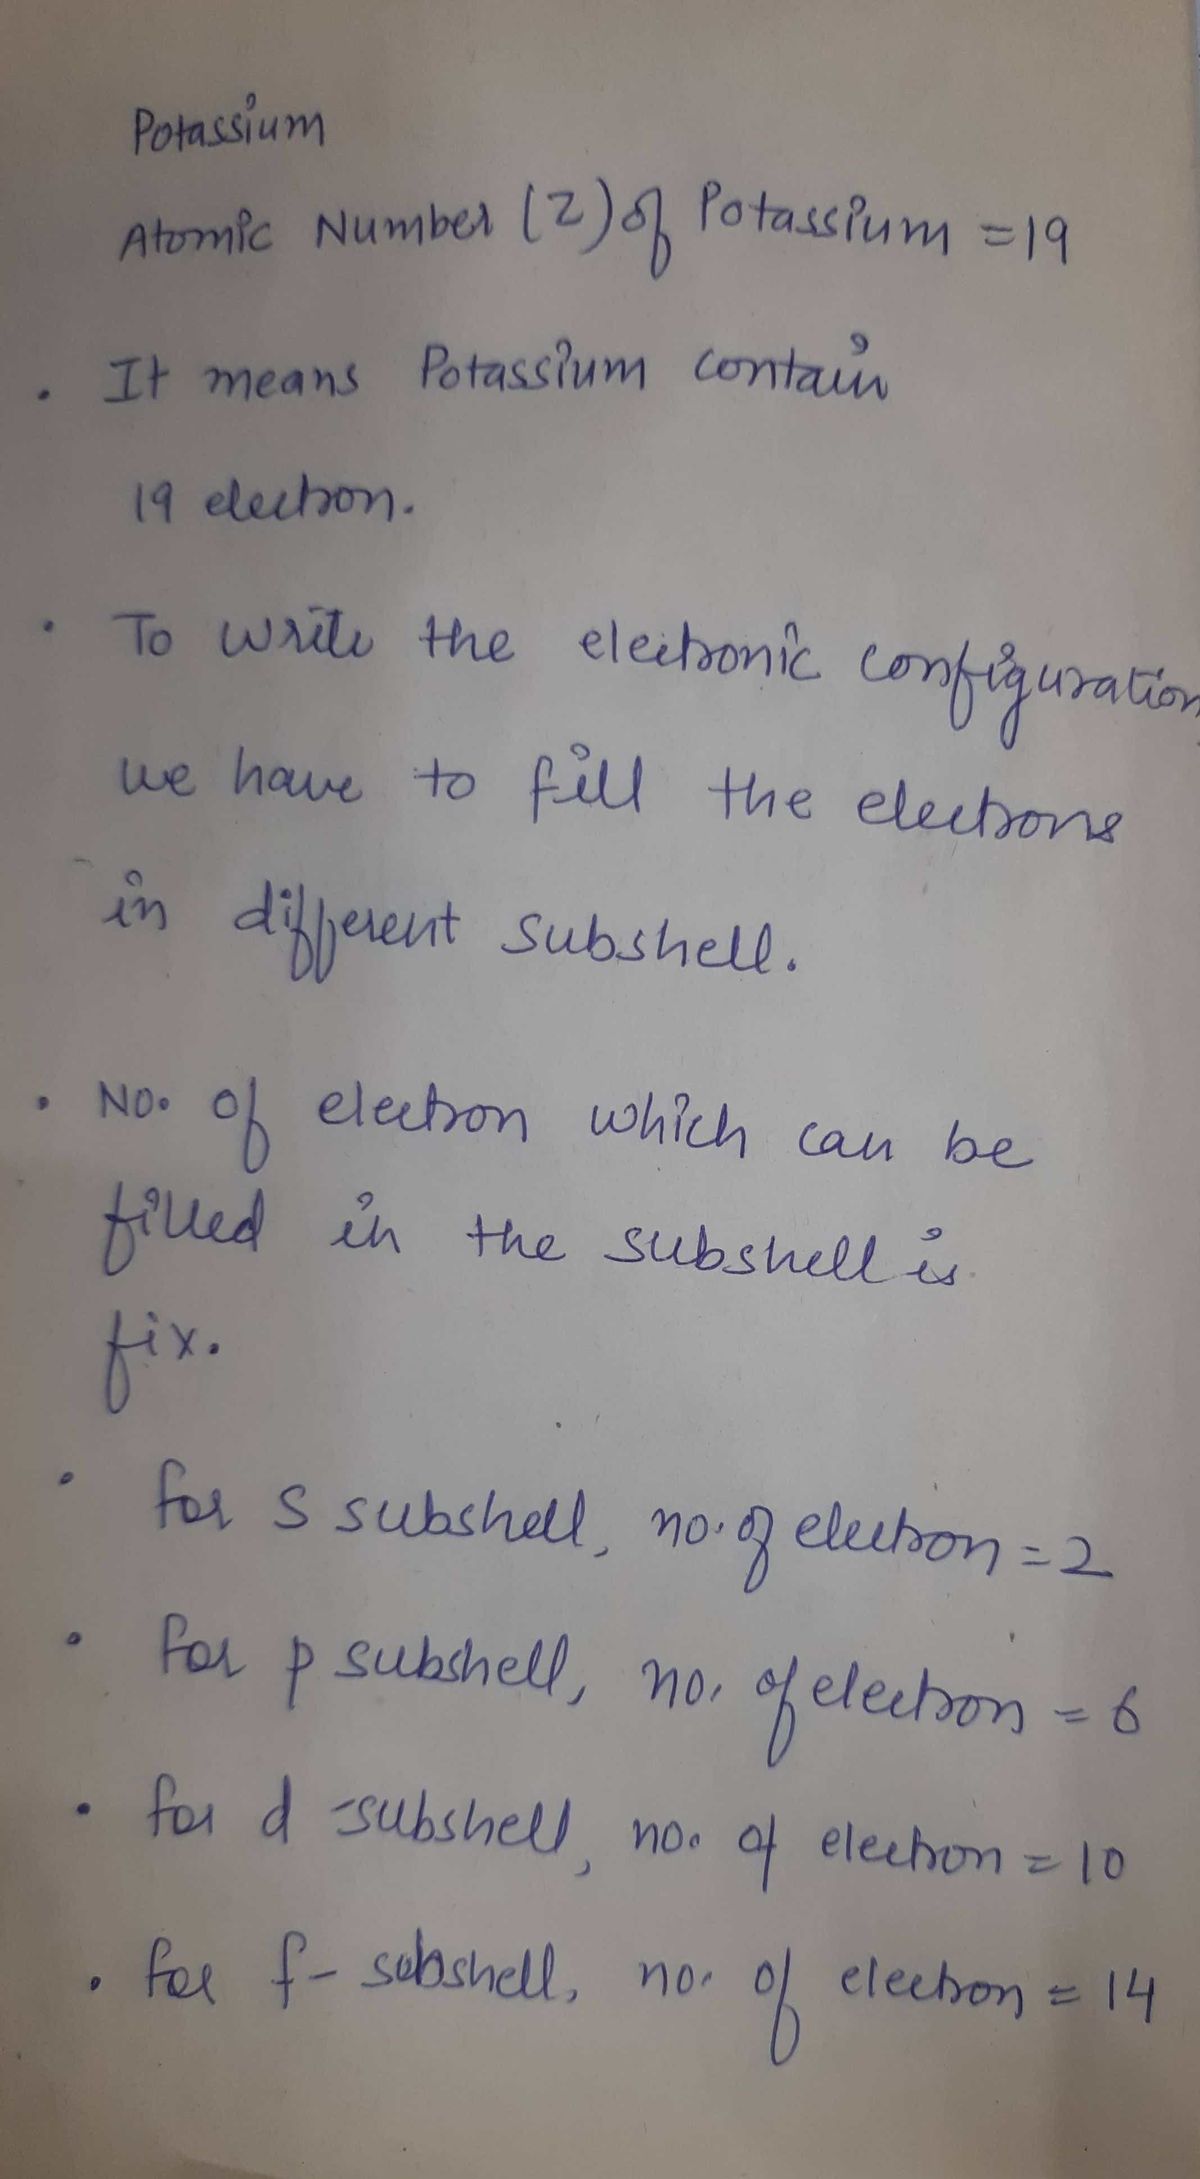 Potassium
Atomic Number (Z) of Potassium = 19
• It means Potassium contain
19 electron.
• To write the electronic configuration
we have to fill the electrons
in different subshell.
• No. of electron which can be
filled in the subshell is
fix.
• for s subshell, no. of electron = 2
• for p subshell, no. of electron = 6
• for d -subshell, no. of electron = 10
• for f- subshell, no. of electron = 14